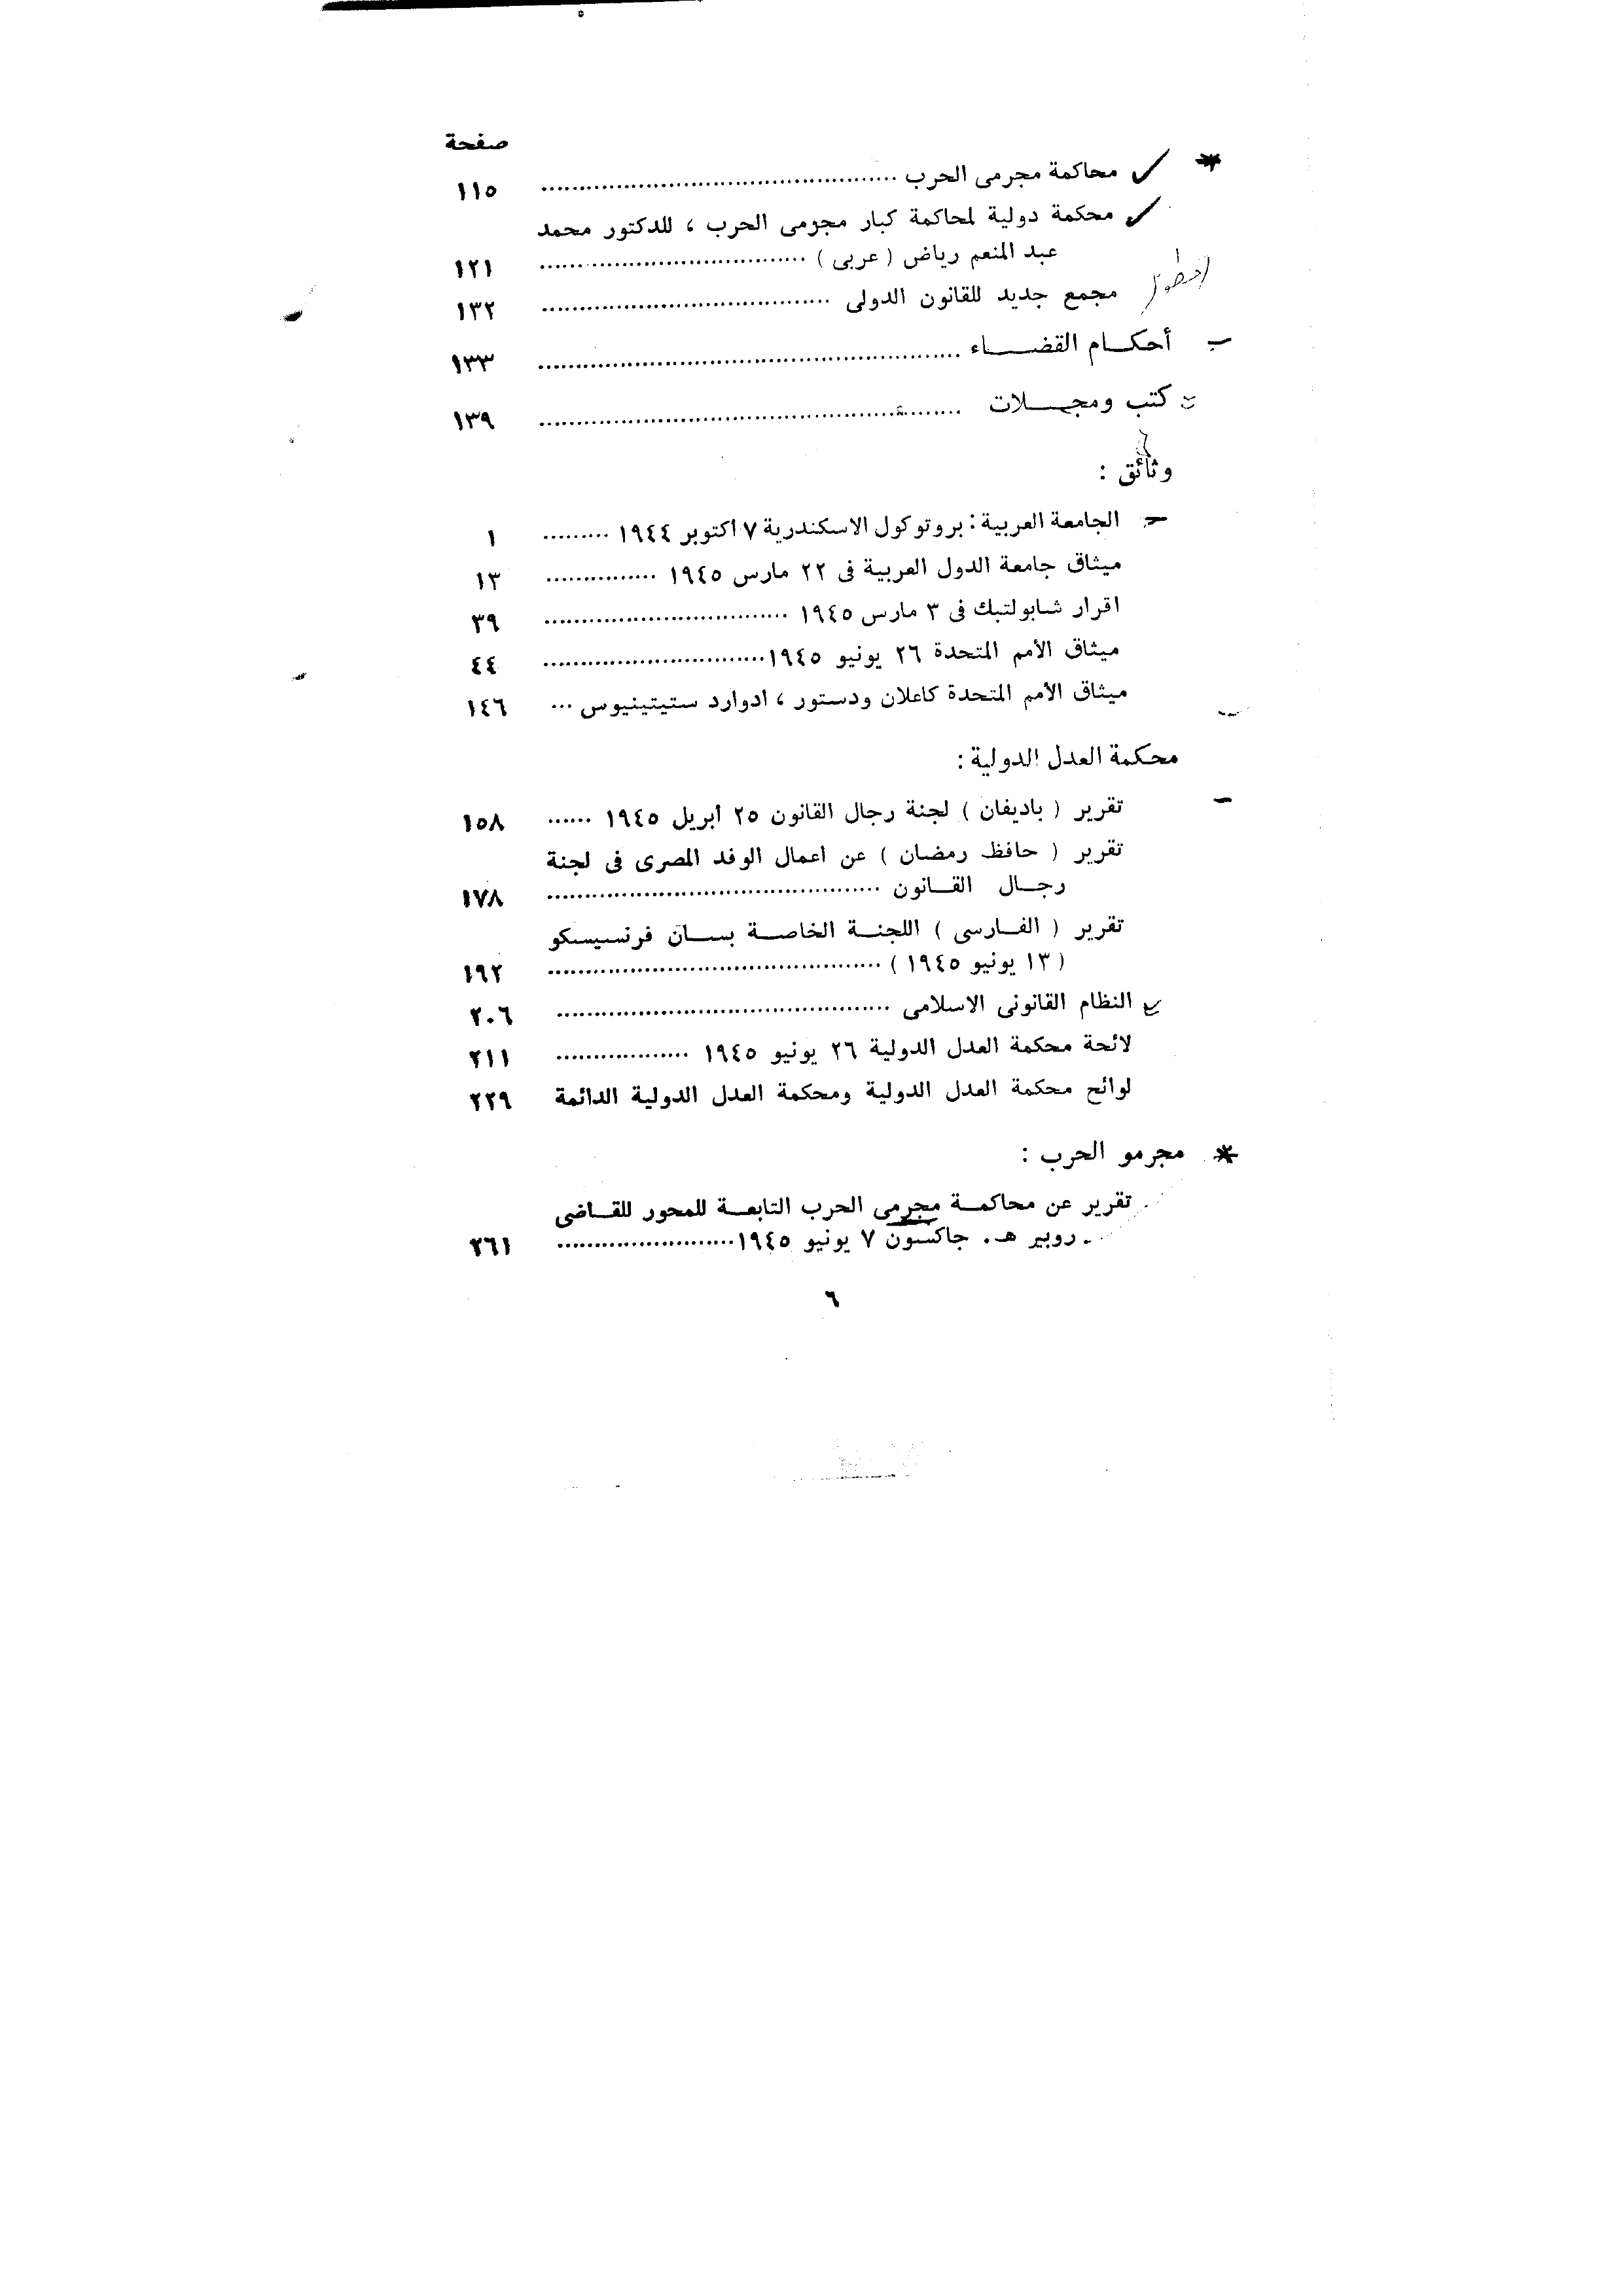 صفحة
محاكمة مجرمى الحرب ........................ ١١٥
محكمة دولية لمحاكمة كبار مجرمى الحرب ، للدكتور محمد
عبد المنعم رياض ( عربى ) ........................ ١٢١
مجمع جديد للقانون الدولى ........................ ١٣٢
أحكام القضاء ........................ ١٣٣
كتب ومجلات ........................ ١٣٩
وثائق :
الجامعة العربية : بروتوكول الاسكندرية ٧ اكتوبر ١٩٤٤ ......... ١
ميثاق جامعة الدول العربية فى ٢٢ مارس ١٩٤٥ ............... ١٣
اقرار شابولتبك فى ٣ مارس ١٩٤٥ ........................ ٣٩
ميثاق الأمم المتحدة ٢٦ يونيو ١٩٤٥ ........................ ٤٤
ميثاق الأمم المتحدة كاعلان ودستور ، ادوارد ستيتينيوس ... ١٤٦
محكمة العدل الدولية :
تقرير ( باديفان ) لجنة رجال القانون ٢٥ ابريل ١٩٤٥ ...... ١٥٨
تقرير ( حافظ رمضان ) عن اعمال الوفد المصرى فى لجنة
رجال القانون ........................ ١٧٨
تقرير ( الفارسى ) اللجنة الخاصة بسان فرنسيسكو
( ١٣ يونيو ١٩٤٥ ) ........................ ١٩٢
النظام القانونى الاسلامى ........................ ٢٠٦
لائحة محكمة العدل الدولية ٢٦ يونيو ١٩٤٥ .................. ٢١١
لوائح محكمة العدل الدولية ومحكمة العدل الدولية الدائمة ٢٢٩
* مجرمو الحرب :
تقرير عن محاكمة مجرمى الحرب التابعة للمحور للقاضى
روبير هـ. جاكسون ٧ يونيو ١٩٤٥ ........................ ٢٦١
٦